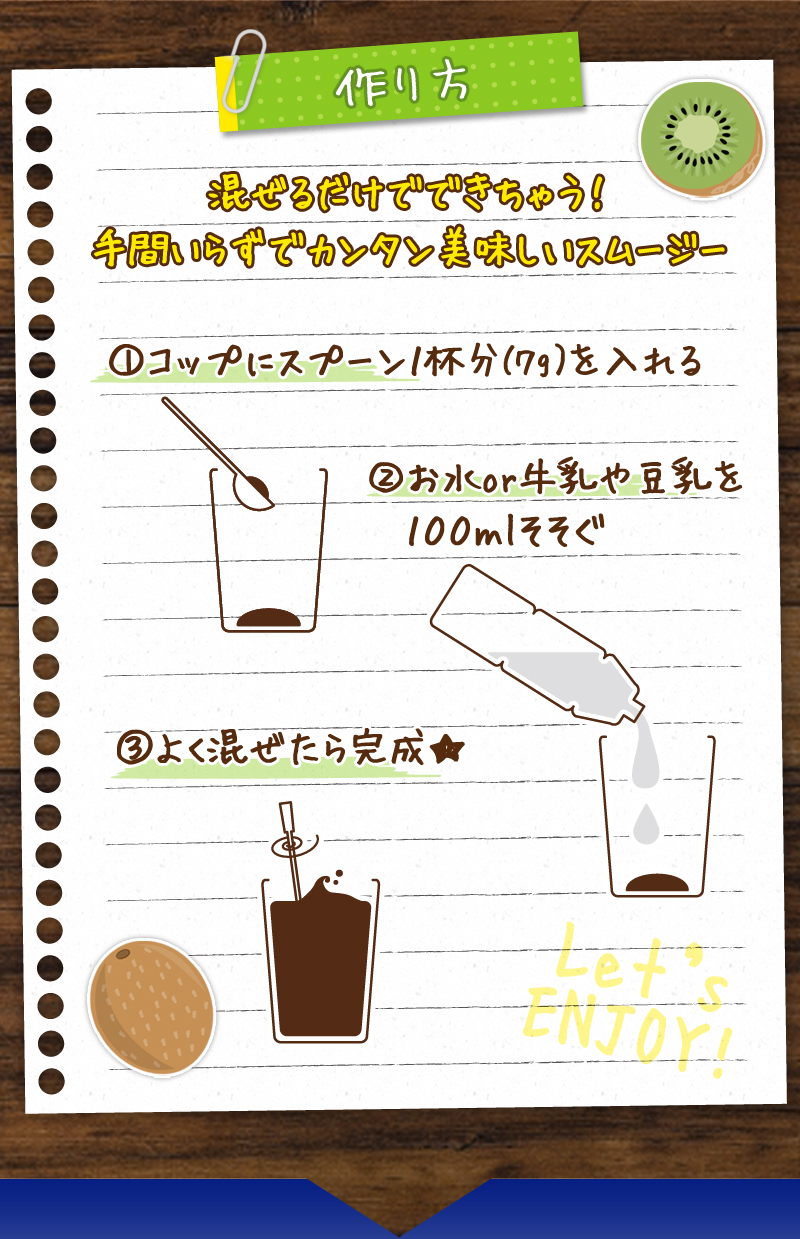 作り方
混ぜるだけでできちゃう！
手間いらずでカンタン美味しいスムージー
①コップにスプーン1杯分(7g)を入れる
②お水or牛乳や豆乳を
100mlそそぐ
③よく混ぜたら完成★
Let's
ENJOY!